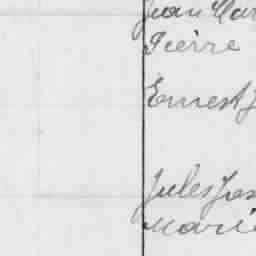 Jean Mar
Pierre
Ernest J
Jules Jos
Marie